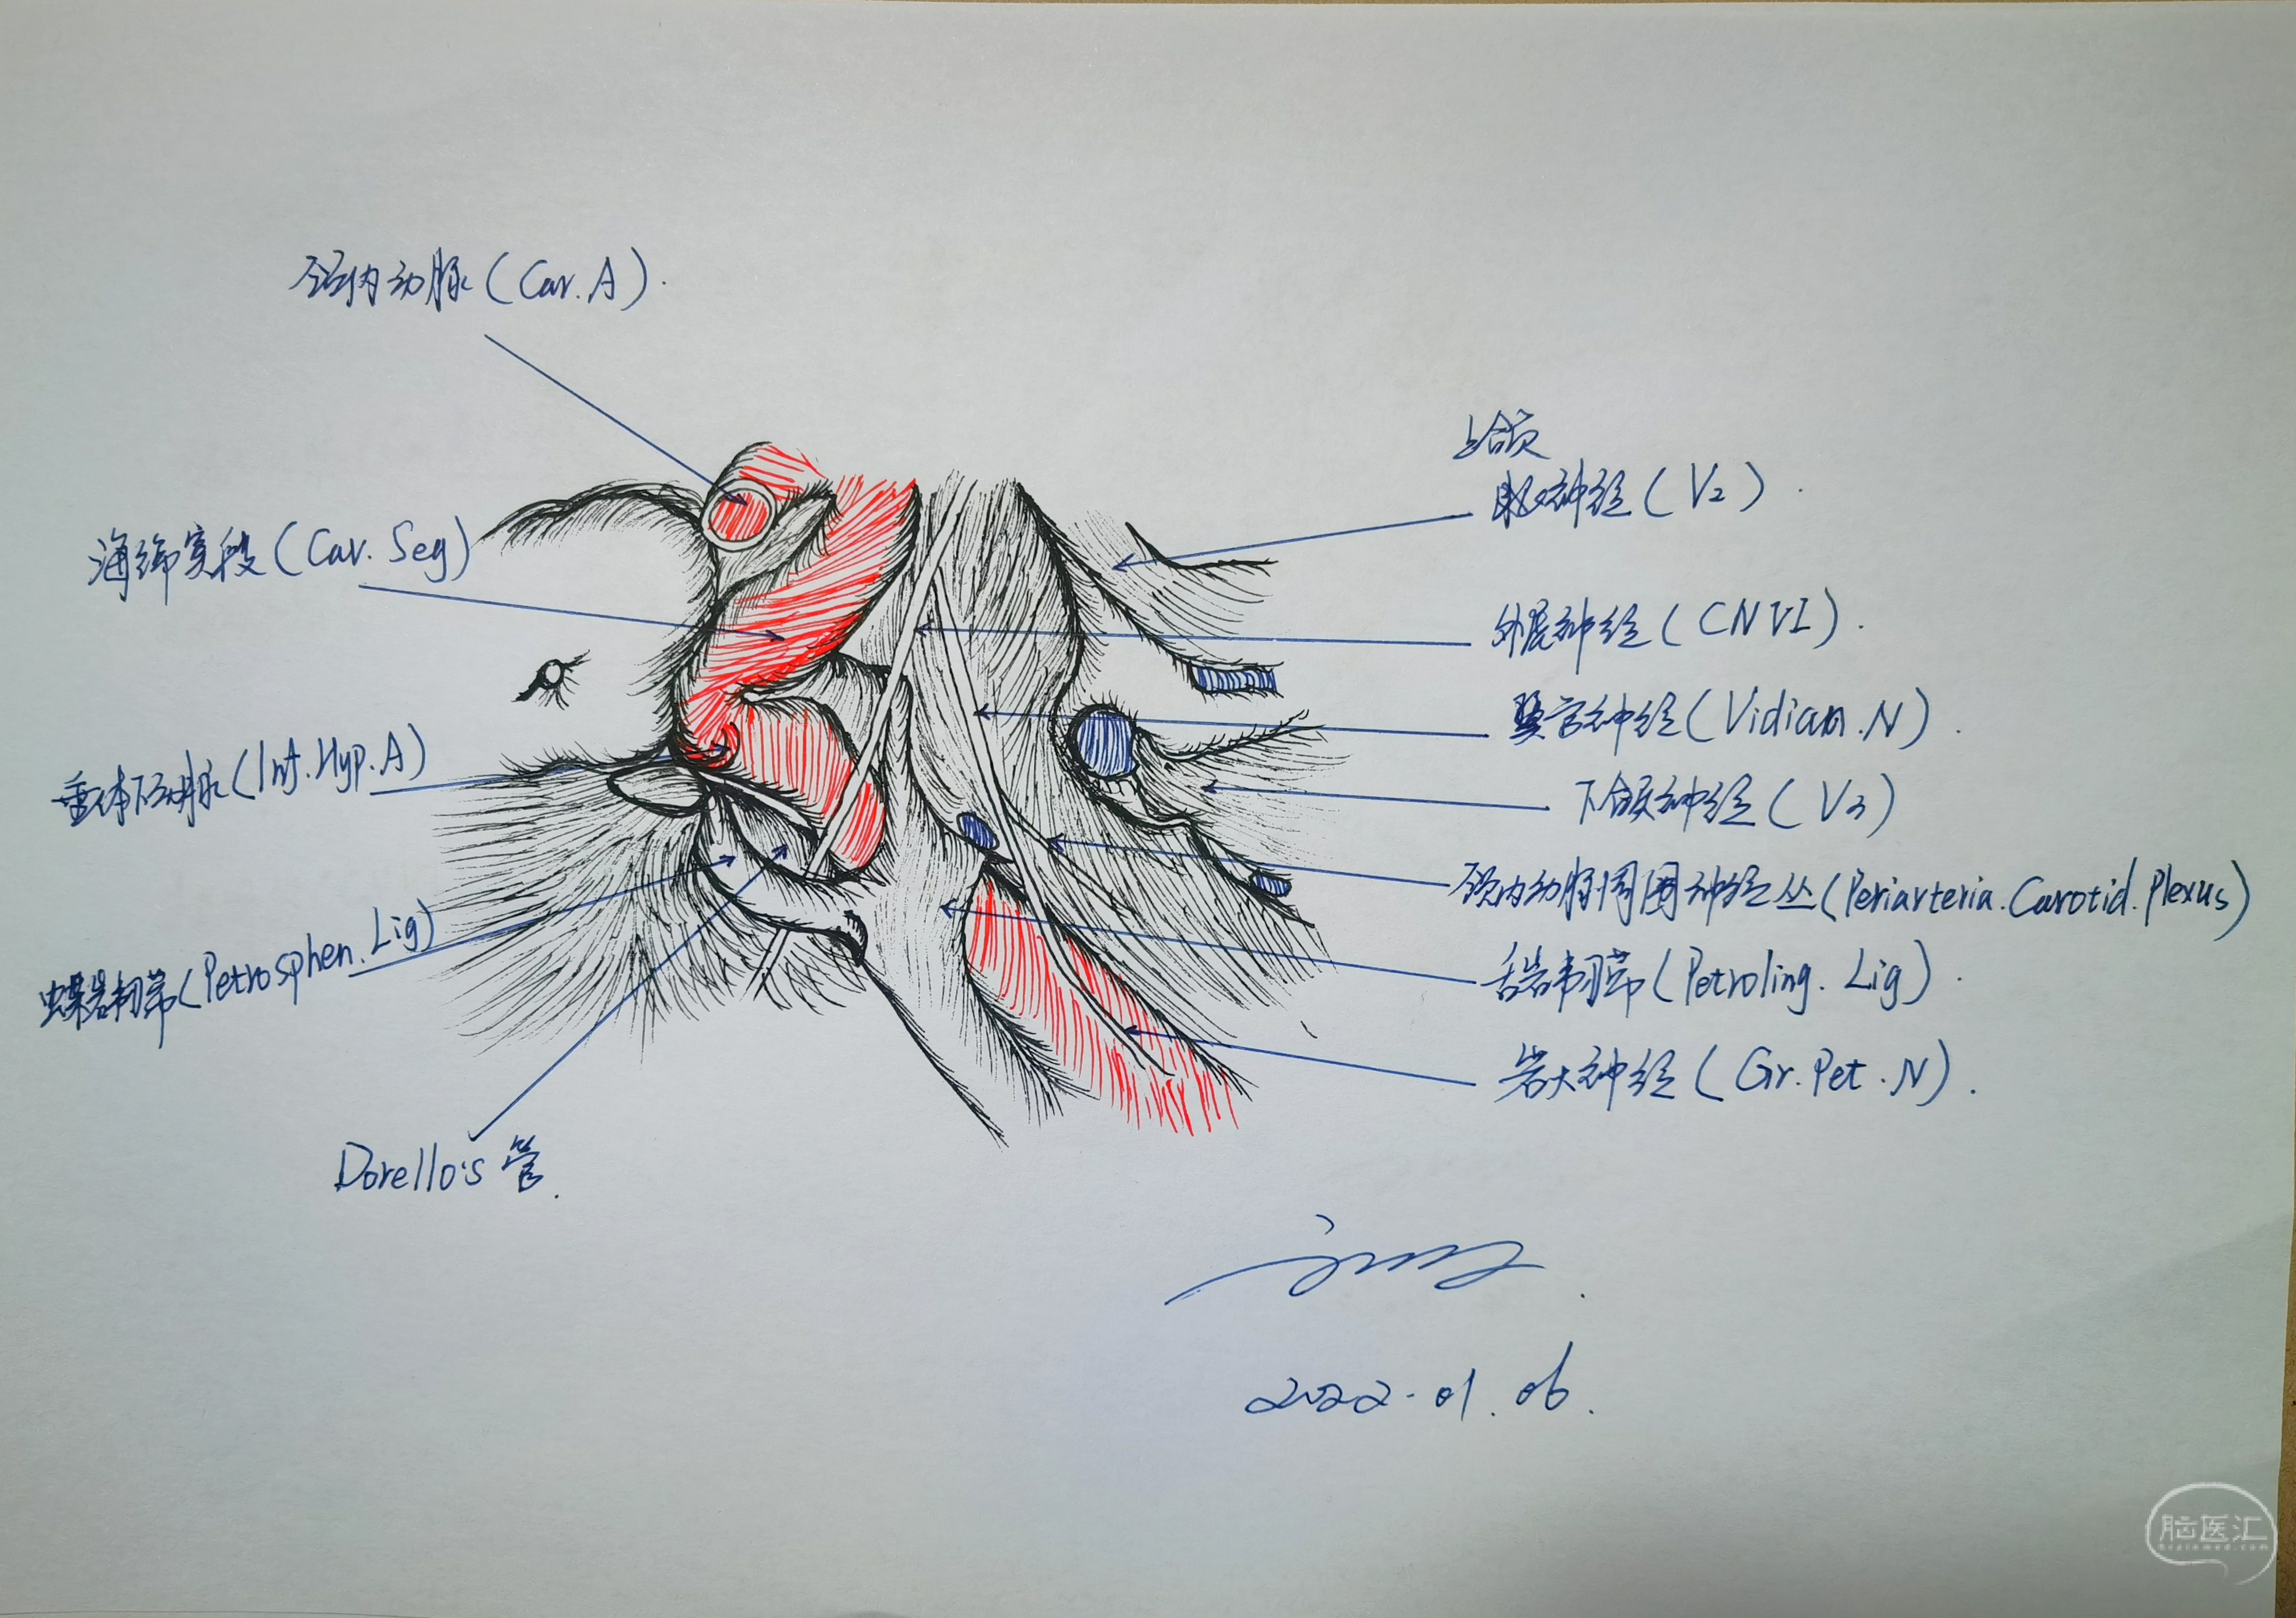 颈内动脉(Car.A).
海绵窦段(Cav.Seg)
垂体下动脉(Inf.Hyp.A)
蝶岩韧带(Petrosphen.Lig)
Dorello's 管.
上颌
神经(V2).
外展神经(CNVI).
翼管神经(Vidian.N).
下颌神经(V3)
颈内动脉周围神经丛(Periarteria.Carotid.Plexus)
舌岩韧带(Petroling.Lig).
岩大神经(Gr.Pet.N).
2022.01.06.
脑医汇
Brainmed.com